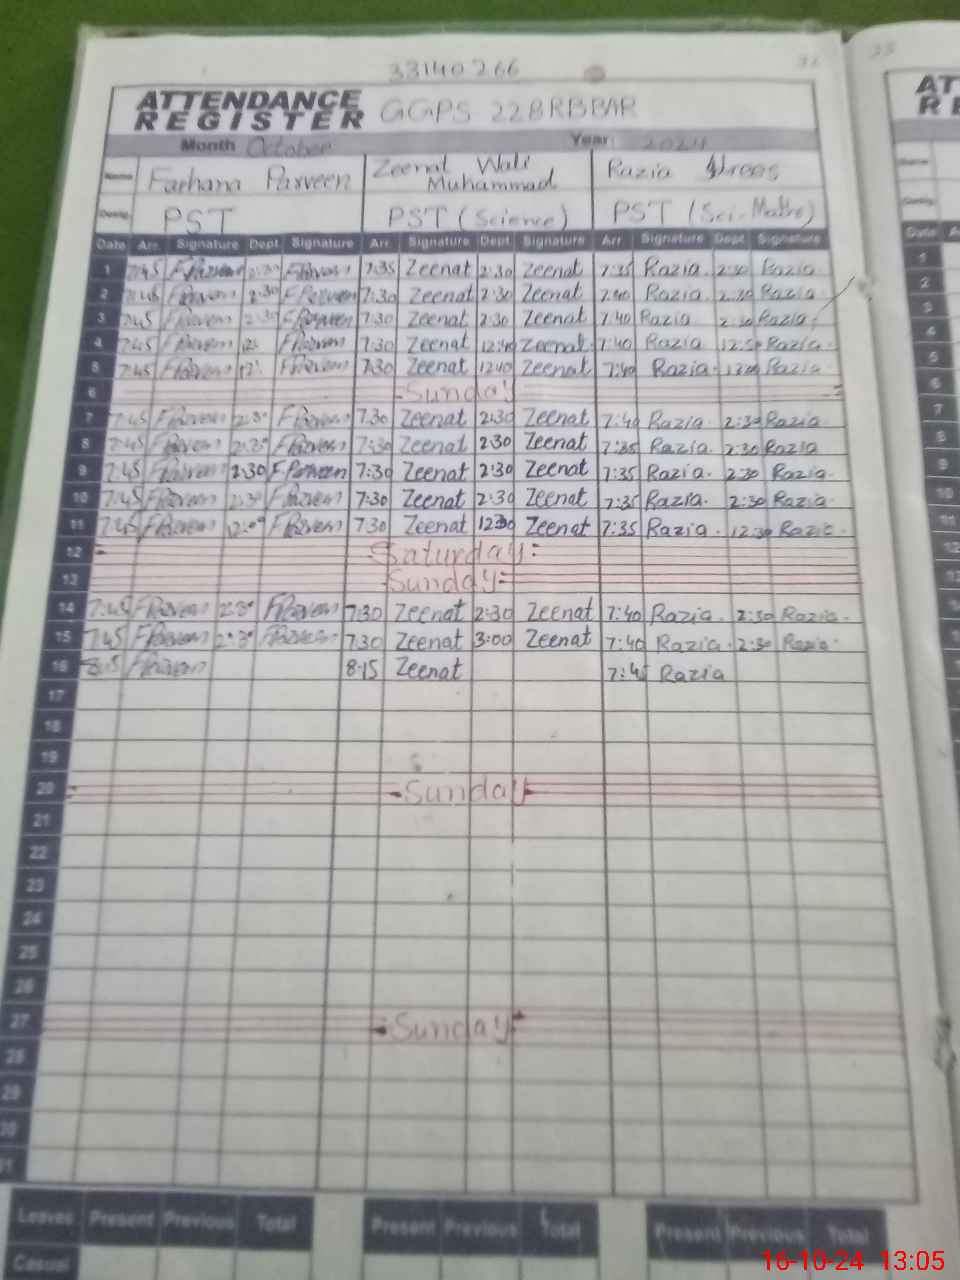 33140266
ATTENDANCE
REGISTER GGPS 228RBBAR
Month October Year: 2024
Name Farhana Parveen Zeenat Wali Muhammad Razia
Desig: PST PST (Science) PST (Sci-Maths)
Date Arr. Signature Dept Signature Arr Signature Dept Signature Arr Signature Dept Signature
1 7:45 FParveen 2:30 FParveen 7:35 Zeenat 2:30 Zeenat 7:35 Razia. 2:30 Razia
2 7:45 FParveen 2:30 FParveen 7:30 Zeenat 2:30 Zeenat 7:40 Razia. 2:30 Razia
3 7:45 FParveen 2:30 FParveen 7:30 Zeenat 2:30 Zeenat 7:40 Razia 2:30 Razia
4 7:45 FParveen FParveen 7:30 Zeenat Zeenat 7:40 Razia Razia
5 7:45 FParveen FParveen 7:30 Zeenat 1240 Zeenat 7:40 Razia Razia
6 Sunday
7 7:45 FParveen 2:30 FParveen 7:30 Zeenat 2:30 Zeenat 7:40 Razia. 2:30 Razia
8 7:45 FParveen 2:30 FParveen 7:30 Zeenat 2:30 Zeenat 7:35 Razia. 2:30 Razia
9 7:45 FParveen 2:30 F.Parveen 7:30 Zeenat 2:30 Zeenat 7:35 Razia. 2:30 Razia.
10 7:45 FParveen 2:30 FParveen 7:30 Zeenat 2:30 Zeenat 7:35 Razia. 2:30 Razia.
11 7:45 FParveen FParveen 7:30 Zeenat 1230 Zeenat 7:35 Razia. 12:30 Razia.
12 Saturday:
13 Sunday
14 7:45 FParveen 2:30 FParveen 7:30 Zeenat 2:30 Zeenat 7:40 Razia. 2:30 Razia.
15 7:45 FParveen 2:30 FParveen 7:30 Zeenat 3:00 Zeenat 7:40 Razia. 2:30 Razia.
16 8:15 FParveen 8:15 Zeenat 7:45 Razia
17
18
19
20 Sunday
21
22
23
24
25
26
27 Sunday
28
29
30
31
Leaves Present Previous Total Present Previous Total Present Previous Total
Casual
16-10-24 13:05